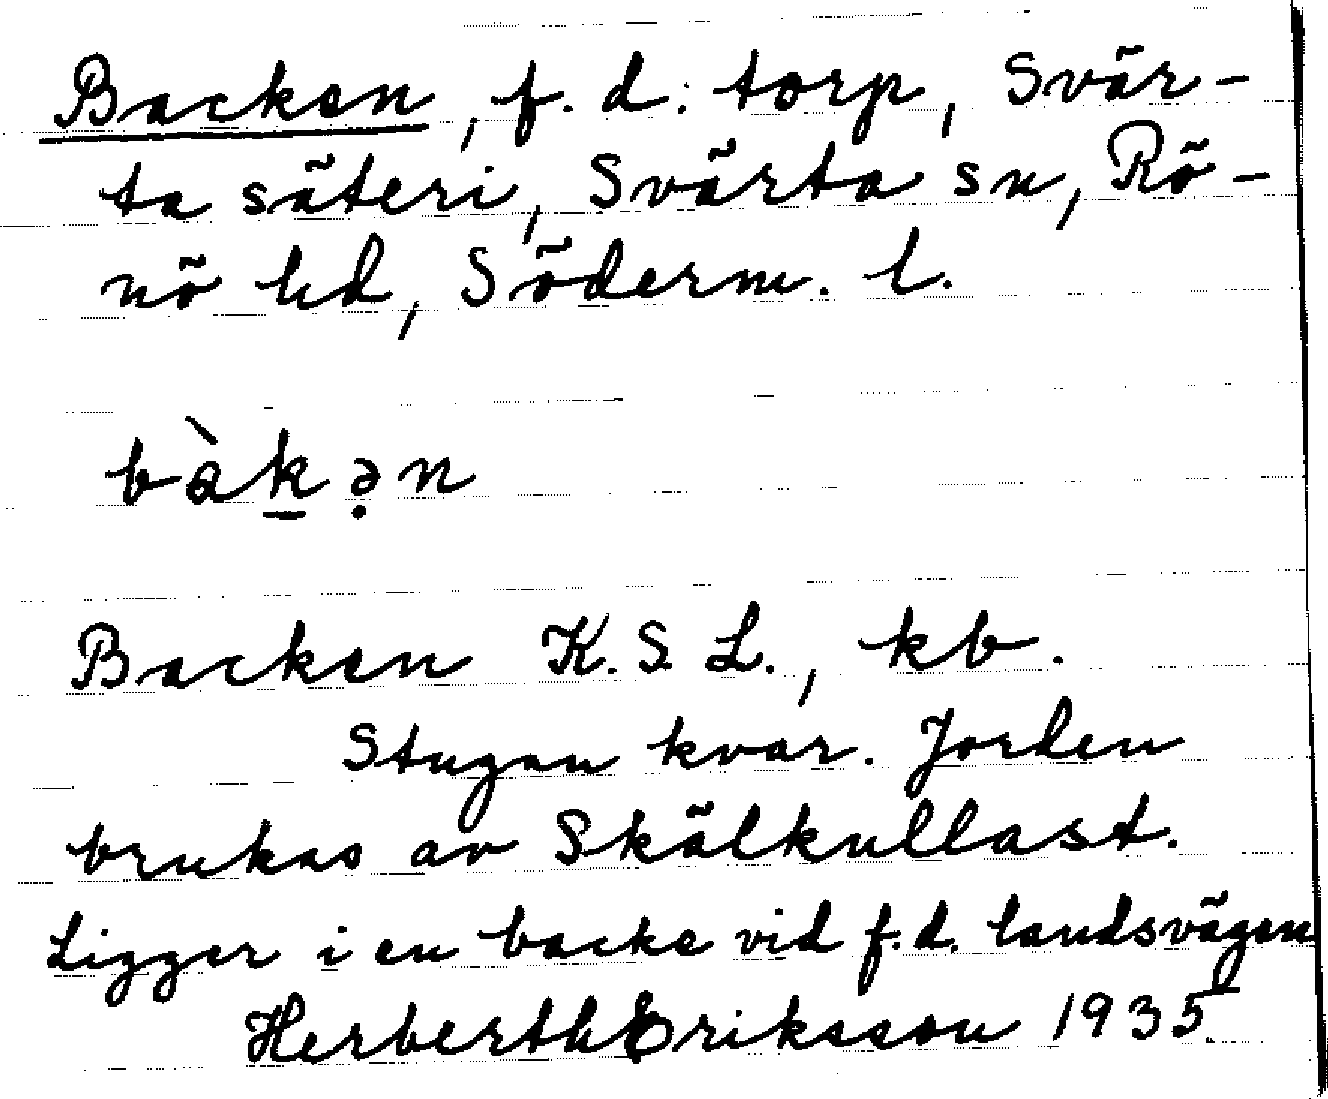 Backen, f. d. torp, Svär-
ta säteri, Svärta sn, Rö-
nö hd, Söderm. l.
bàk̲ə̣n
Backen K. S L., kb.
Stugan kvar. Jorden
brukas av Skälkullast.
Ligger i en backe vid f.d. landsvägen
Herberth Eriksson 1935.